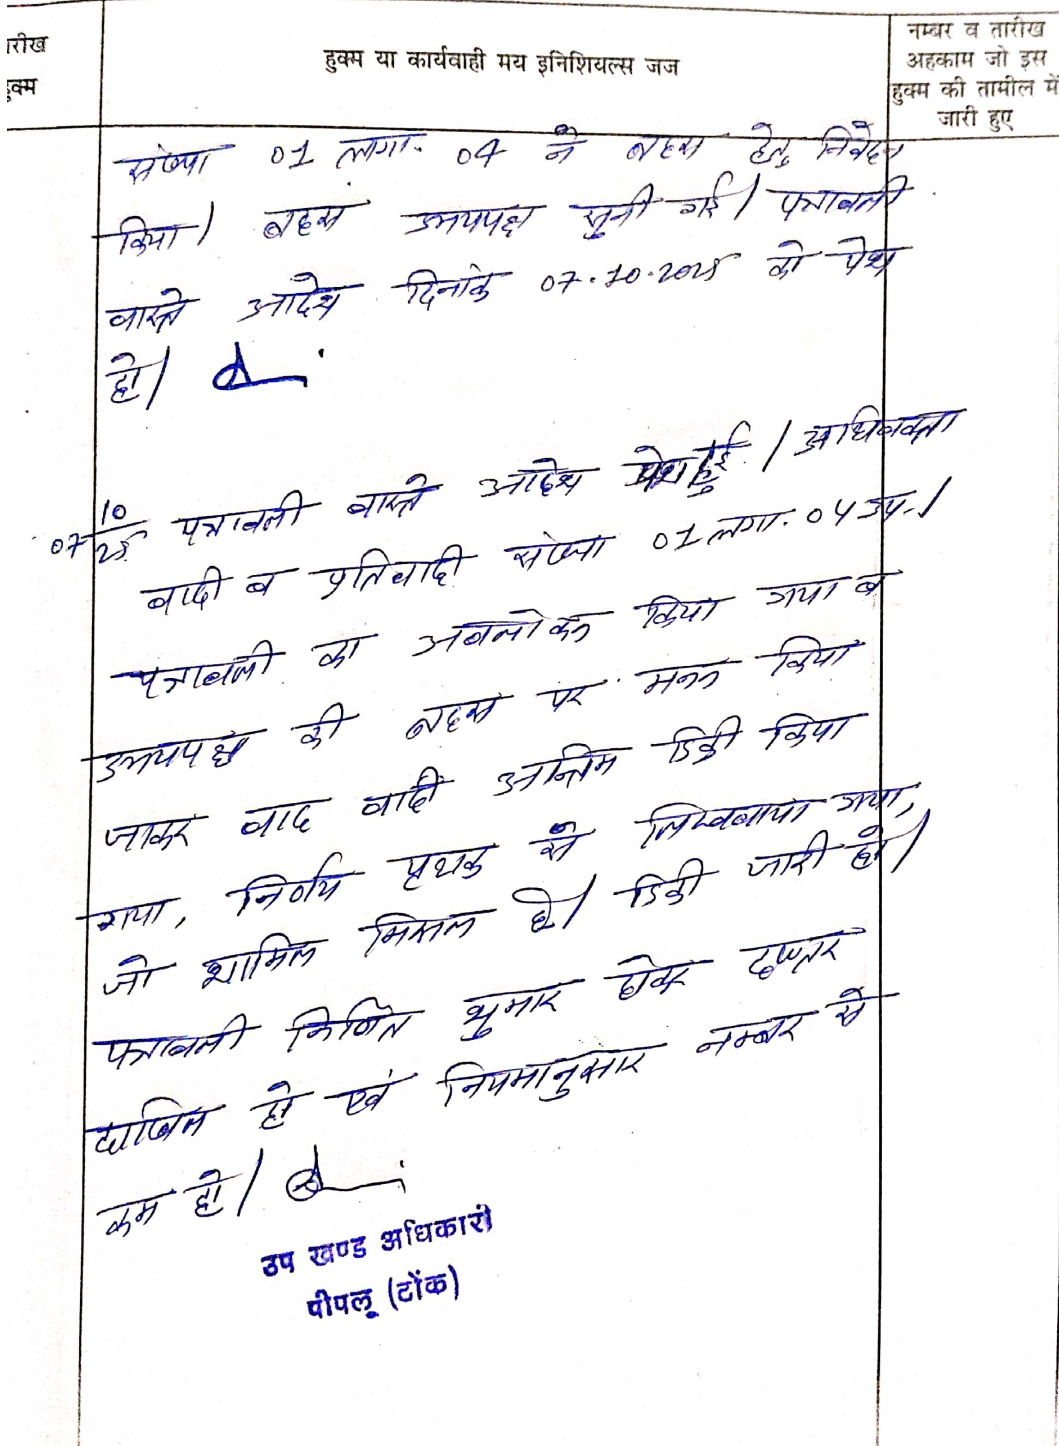 तारीख
हुक्म
हुक्म या कार्यवाही मय इनिशियल्स जज
नम्बर व तारीख
अहकाम जो इस
हुक्म की तामील में
जारी हुए
संख्या 01 लगा. 04 ने बहस हेतु निवेदन
किया। बहस उभयपक्ष सुनी गई। पत्रावली
वास्ते आदेश दिनांक 07.10.2025 को पेश
हो।
07/10/25 पत्रावली वास्ते आदेश पेश हुई। अधिवक्ता
वादी व प्रतिवादी संख्या 01 लगा. 04 उप.।
पत्रावली का अवलोकन किया गया व
उभयपक्ष की बहस पर मनन किया
जाकर वाद वादी अन्तिम डिक्री किया
गया, निर्णय पृथक से लिखवाया गया,
जो शामिल मिसल है। डिक्री जारी हो।
पत्रावली निर्णित शुमार होकर दफ्तर
दाखिल हो एवं नियमानुसार नम्बर से
कम हो।
उप खण्ड अधिकारी
पीपलू (टोंक)